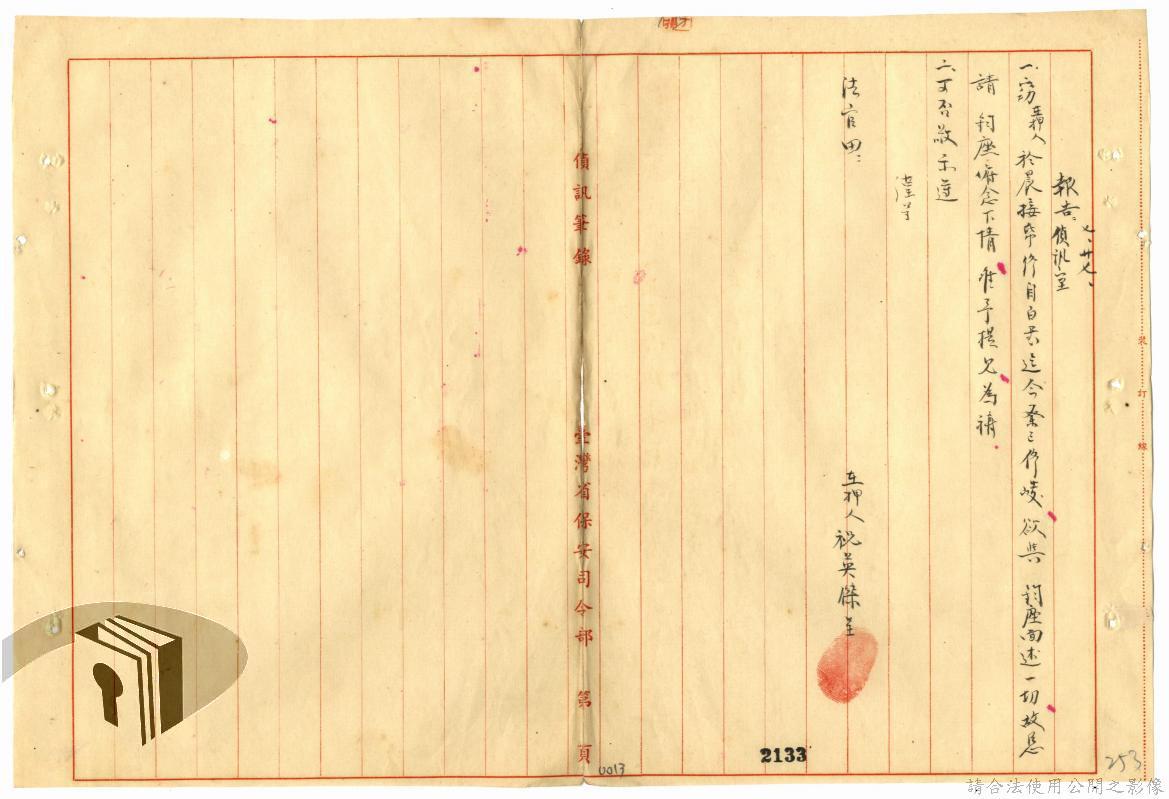 報告 七、廿七、
偵訊室
一、竊在押人於晨接奉作自白书迄今業已作竣欲與 鈞座面述一切故恳
請 鈞座俯念下情准予提見為禱
二、可否敬示遵
謹呈
法官周
在押人祝英傑呈
偵訊筆錄 臺灣省保安司令部 第 頁
裝訂線
2133
0013
253
請合法使用公開之影像